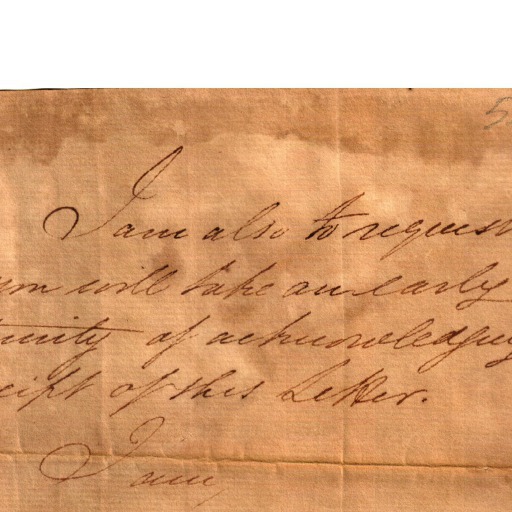 5
I am also to request
you will take an early
tunity of acknowledging
ceipt of this Letter.
I am,